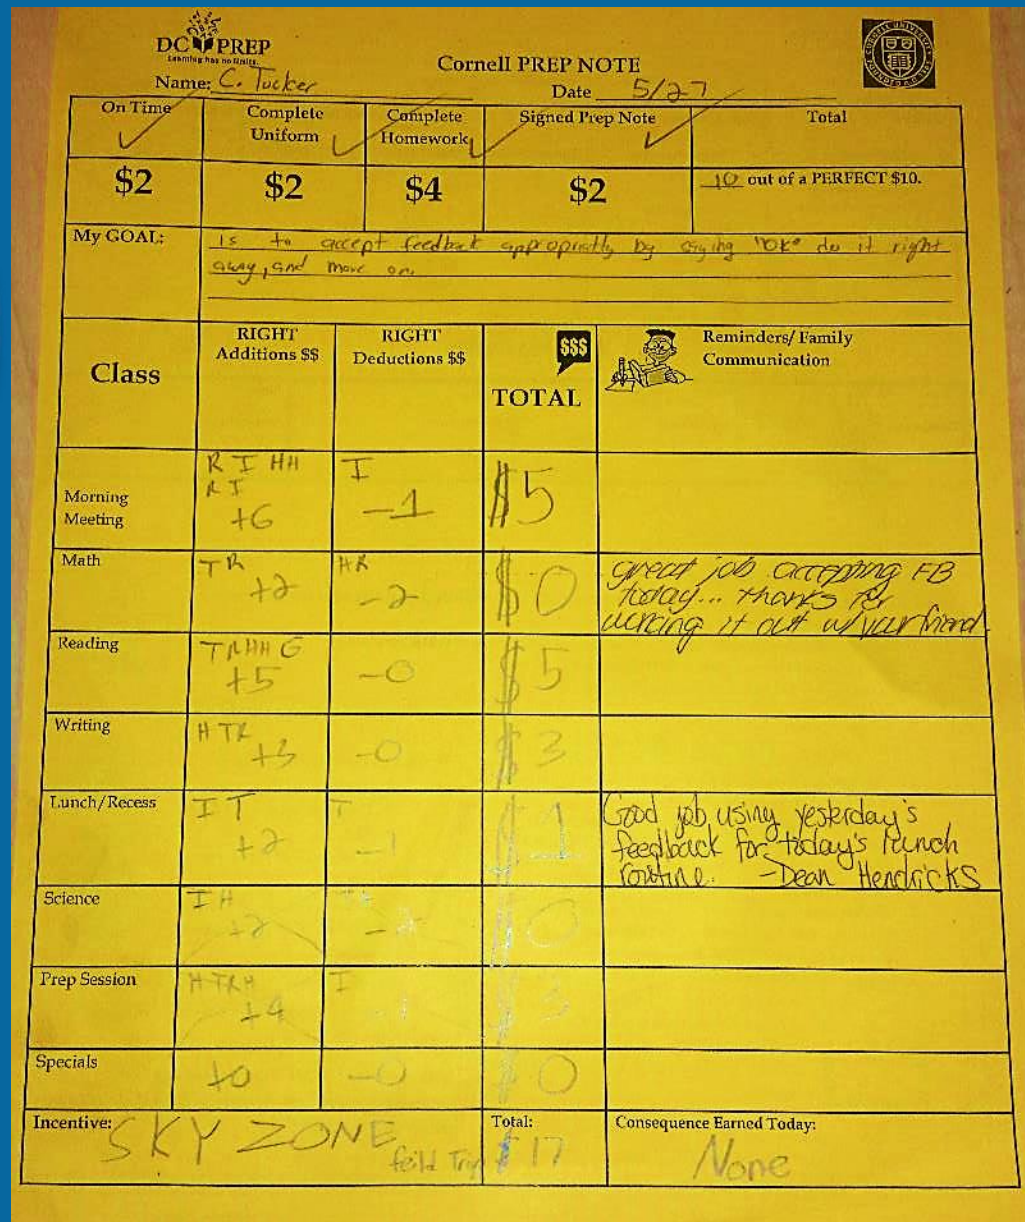 DC PREP
Learning has no limits.
Cornell PREP NOTE
Name: C. Tucker
Date 5/27
On Time
Complete Uniform
Complete Homework
Signed Prep Note
Total
$2
$2
$4
$2
10 out of a PERFECT $10.
My GOAL:
is to accept feedback appropriatly by saying "OK" do it right
away, and move on.
Class
RIGHT
Additions $$
RIGHT
Deductions $$
$$$
TOTAL
Reminders/ Family
Communication
Morning
Meeting
R I HH
R I
+6
I
-1
$5
Math
TR
+2
HR
-2
$0
great job accepting FB
today... thanks for
working it out w/your friend.
Reading
TRHH G
+5
-0
$5
Writing
H TR
+3
-0
$3
Lunch/Recess
I T
+2
T
-1
$1
Good job using yesterday's
feedback for today's lunch
routine. -Dean Hendricks
Science
I H
+2
-2
$0
Prep Session
H TRH
+4
I
-1
$3
Specials
+0
-0
$0
Incentive:
SKY ZONE
feild Trip
Total:
$17
Consequence Earned Today:
None